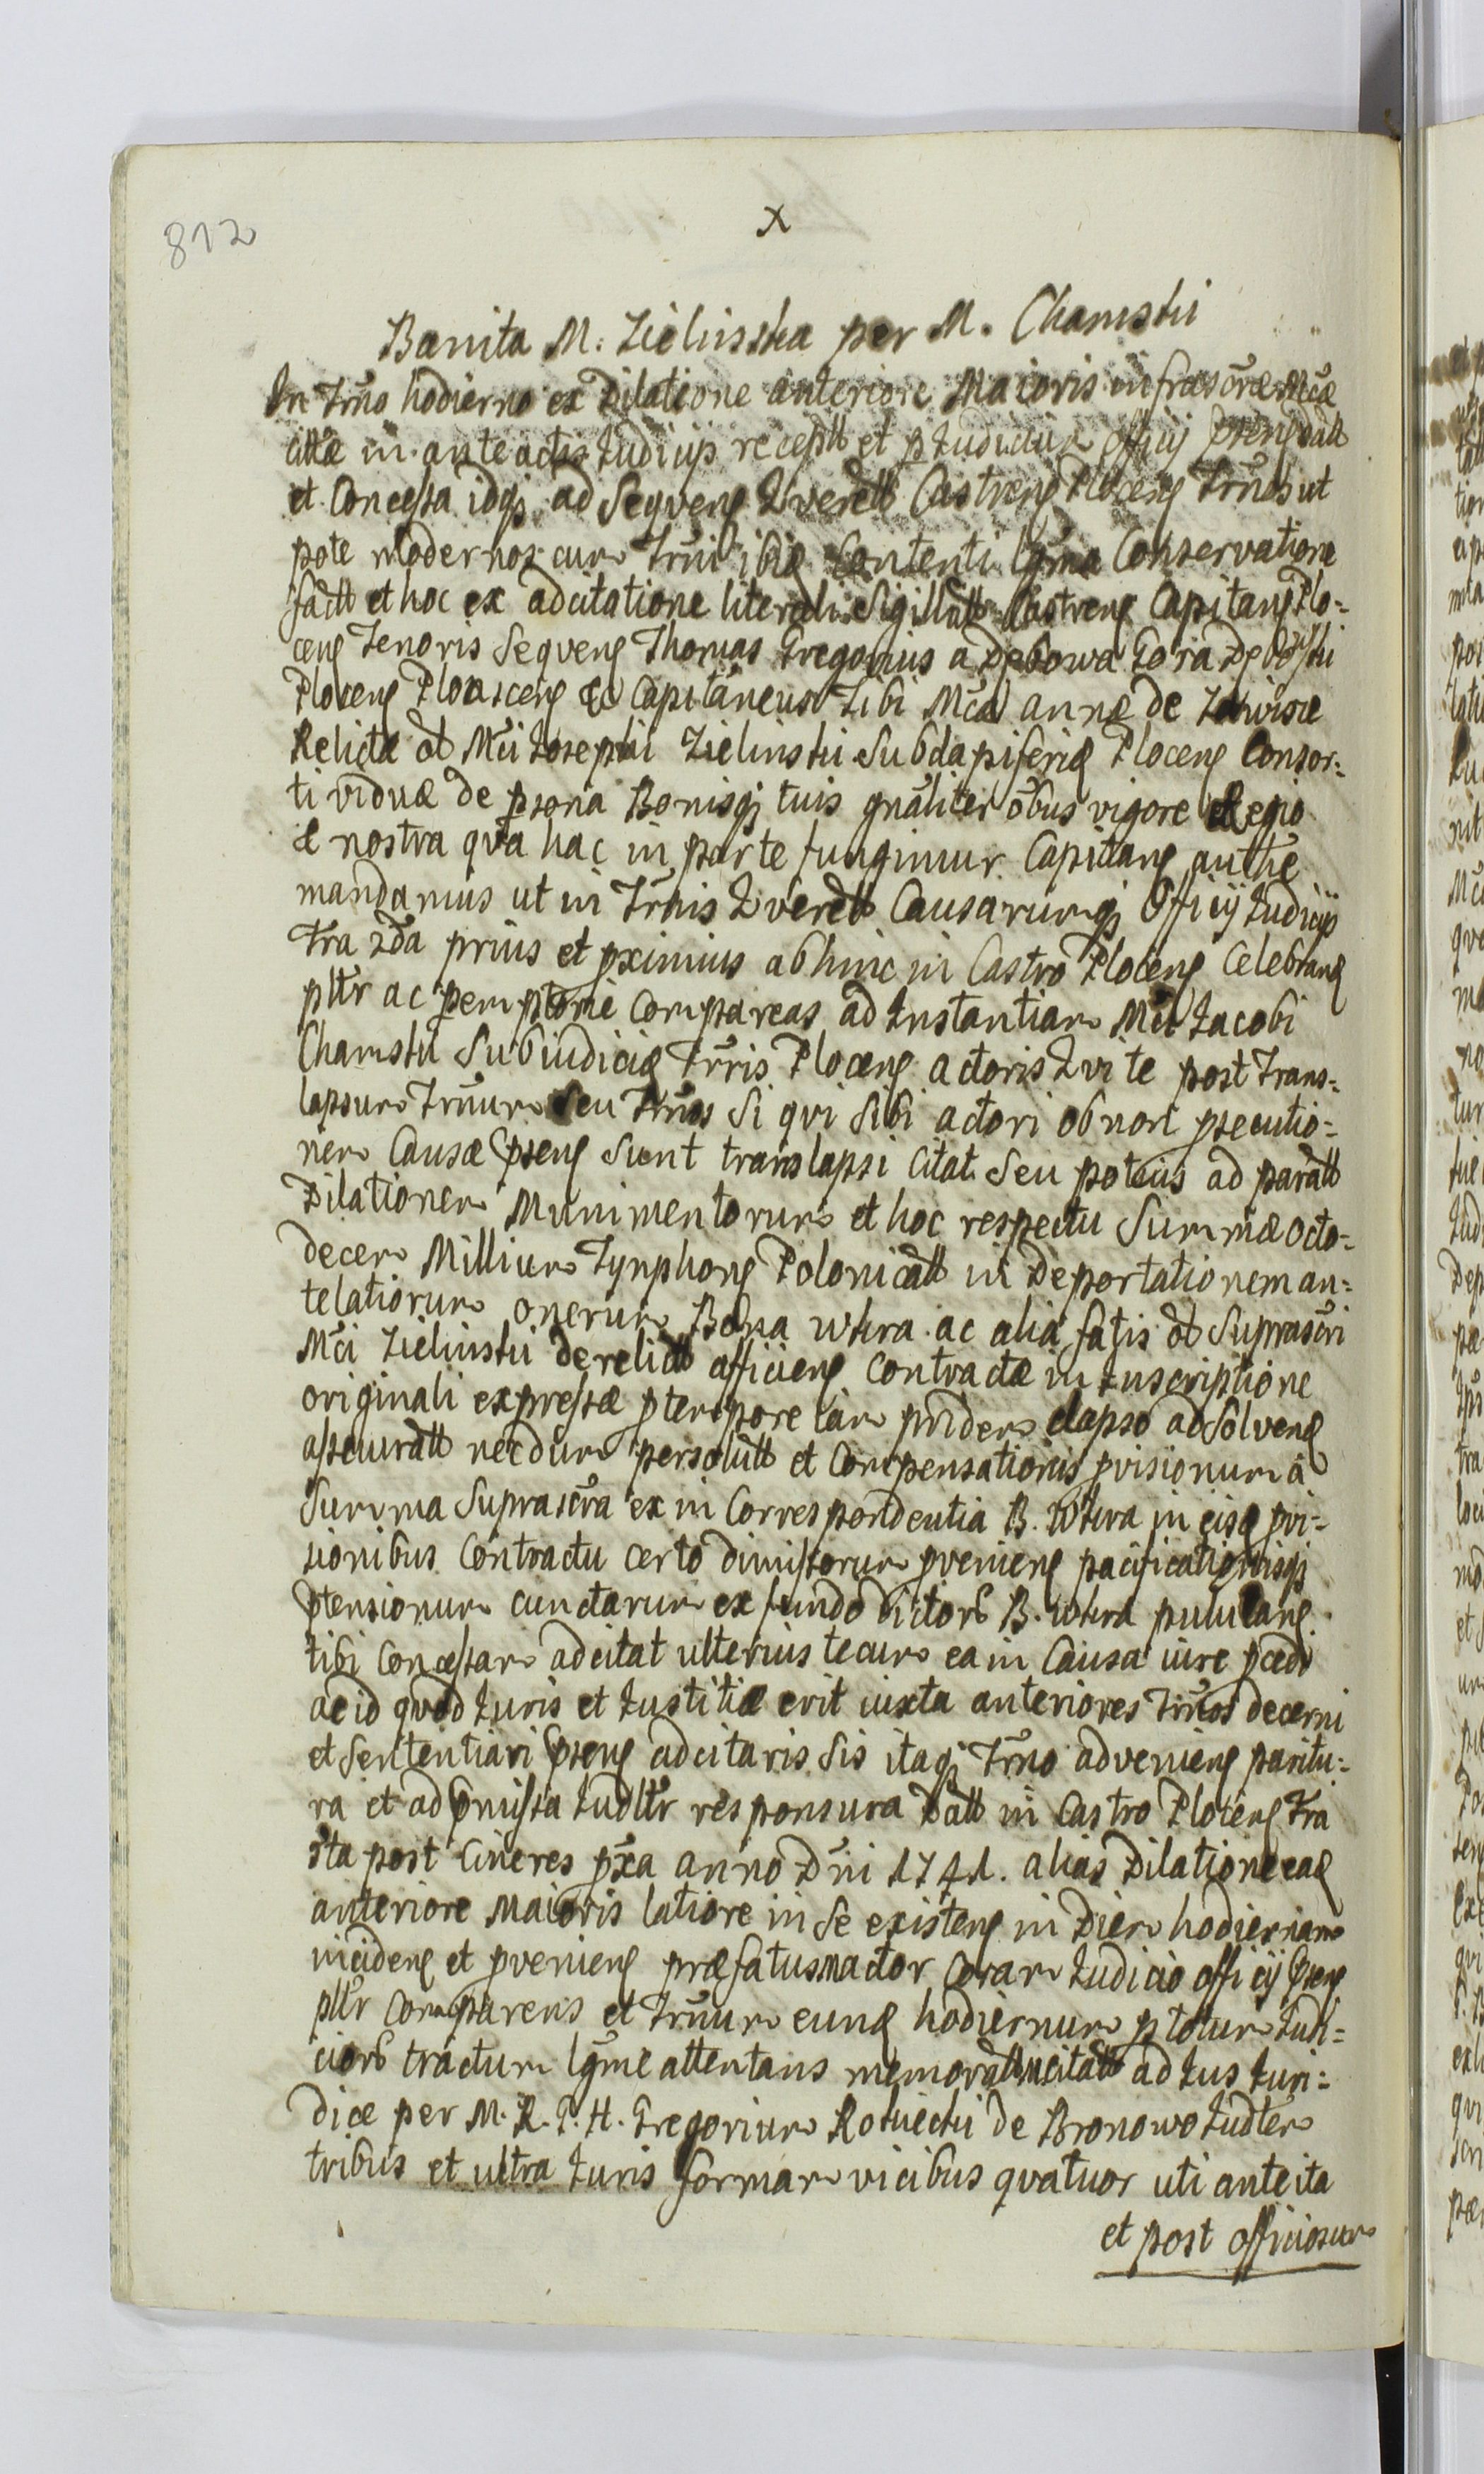 812
x
Banita M. Zielinska per M. Chamski
In Trno hodierno ex Dilatione anteriore Maioris infrascrae Mcae
cittae in anteactis Judiciis receptt et p Judicium Officij psens datt
et Concessa idqz ad Seqvens Qverelt Castrens Plocens Trnos ut
pote modernos cum Trni ibid Contenti lgma Conservatione
factt et hoc ex adcitatione literali Sigillatt Castrens Capitans Plo=
cens Tenoris Seqvens Thomas Gregorius a Debowa Gora Debowski
Plocens Ploascens &c Capitaneus Tibi Mcae annae de
Relictae olt Mci Josephi Zielinski Subdapiferid Plocens Consor=
ti viduae de psona Bonisqz tuis gnaliter obus vigore Regio
& nostra qva hac in parte fungimur Capitans authe
mandamus ut in Trnis Qverelt Causarumqz Officij Judiciis
fra 2da prius et pximius abhinc in Castro Plocens Celebrans
pltr ac peremptorie Compareas ad Instantiam Mci Jacobi
Chamski Subiudicid Trris Plocens actoris Qvi te post Trans=
lapsum Trnum Seu Trnos Si qvi Sibi actori ob non psecutio=
nem Causae psens Sunt translapsi Citat Seu potius ad paratt
Dilationem Munimentorum et hoc respectu Summae octo=
decem Millium Tynphons Polonicatt in Deportationem an=
telatiorum onerum Bona wtura ac alia fatis olt Suprascri
Mci Zielinski derelictt afficiens Contractae in Inscriptione
originali expressae p tempore iam pridem elapso ad Solvens
assecuratt necdum persolutt et Compensationis pvisionum a
Summa Suprascra ex in Correspondentia B. wtura in eisd pvi=
sionibus Contractu certo dimissorum pveniens pacificationisqz
ptensionum cunctarum ex fundo dictorb B. wtura pululans
tibi Concessam adcitat ulterius tecum ea in Causa iure pcedi
ac id qvod Juris et Justitiae erit iuxta anteriores Trnos decerni
et Sententiari psens adcitaris Sis itaqz Trno adveniens paritu=
ra et ad pmissa Judltr responsura Datt in Castro Plocens fra
5ta post Cineres pxa anno Dni 1741. alias Dilatione ead
anteriore Maioris latiore in Se existens in Diem hodiernam
incidens et pveniens praefatus M actor Coram Judicio officij psens
pltr Comparens et Trnum eund hodiernum p totum Judi=
ciorb tractum lgme attentans memoratt M citatt ad Jus Juri=
dice per M. R. P. H. Gregorium Rokiecki de Bronowo Judlem
tribus et ultra Juris formam vicibus qvatuor uti ante ita
et post officiosum